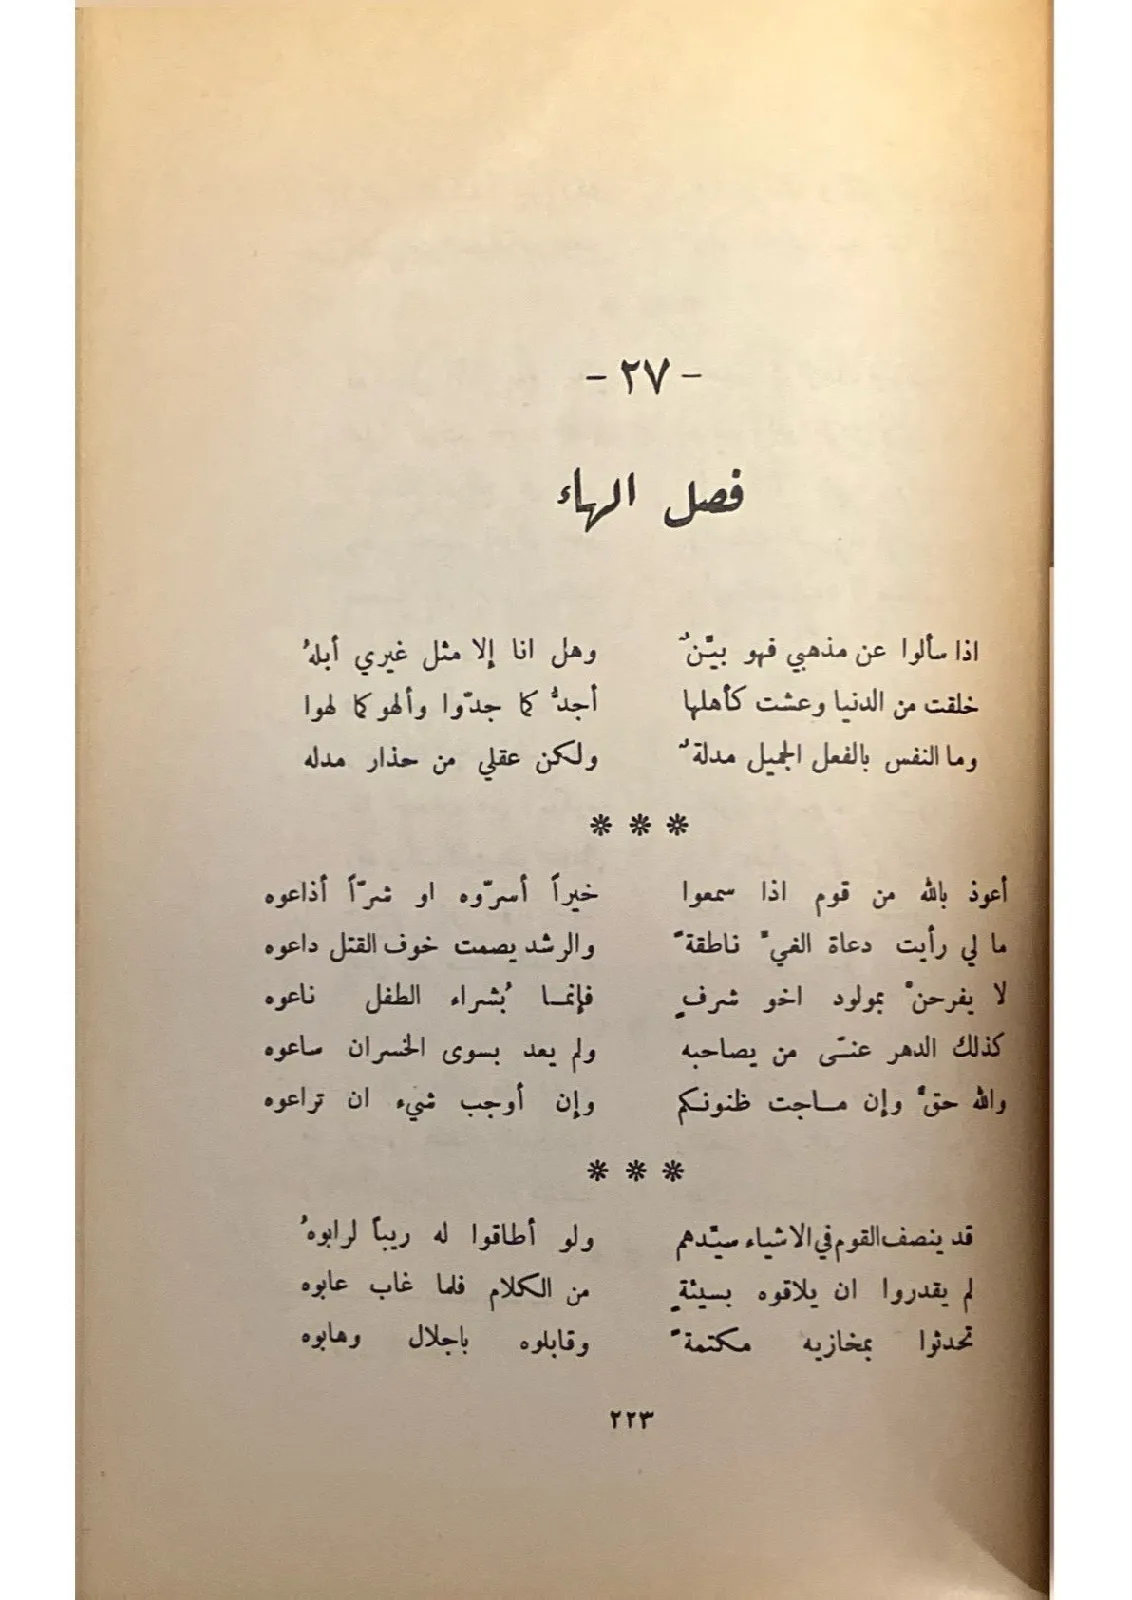 - ٢٧ -
فصل الهاء
اذا سألوا عن مذهبي فهو بيّنٌ وهل انا إلا مثل غيري أبلهُ
خلقت من الدنيا وعشت كأهلها أجدُّ كما جدّوا وألهو كما لهوا
وما النفس بالفعل الجميل مدلةٌ ولكن عقلي من حذار مدله
* * *
أعوذ بالله من قوم اذا سمعوا خيراً أسرّوه او شرّاً أذاعوه
ما لي رأيت دعاة الغيِّ ناطقةً والرشد يصمت خوف القتل داعوه
لا يفرحنْ بمولود اخو شرفٍ فإنمـا بُشراء الطفل ناعوه
كذلك الدهر عنّى من يصاحبه ولم يعد بسوى الخسران ساعوه
والله حقٌ وإن مـاجت ظنونـكم وإن أوجب شيء ان تراعوه
* * *
قد ينصف القوم في الاشياء سيّدهم ولو أطاقوا له ريباً لرابوهُ
لم يقدروا ان يلاقوه بسيئةٍ من الكلام فلما غاب عابوه
تحدثوا بمخازيه مكتمةً وقابلوه باجلال وهابوه
٢٢٣